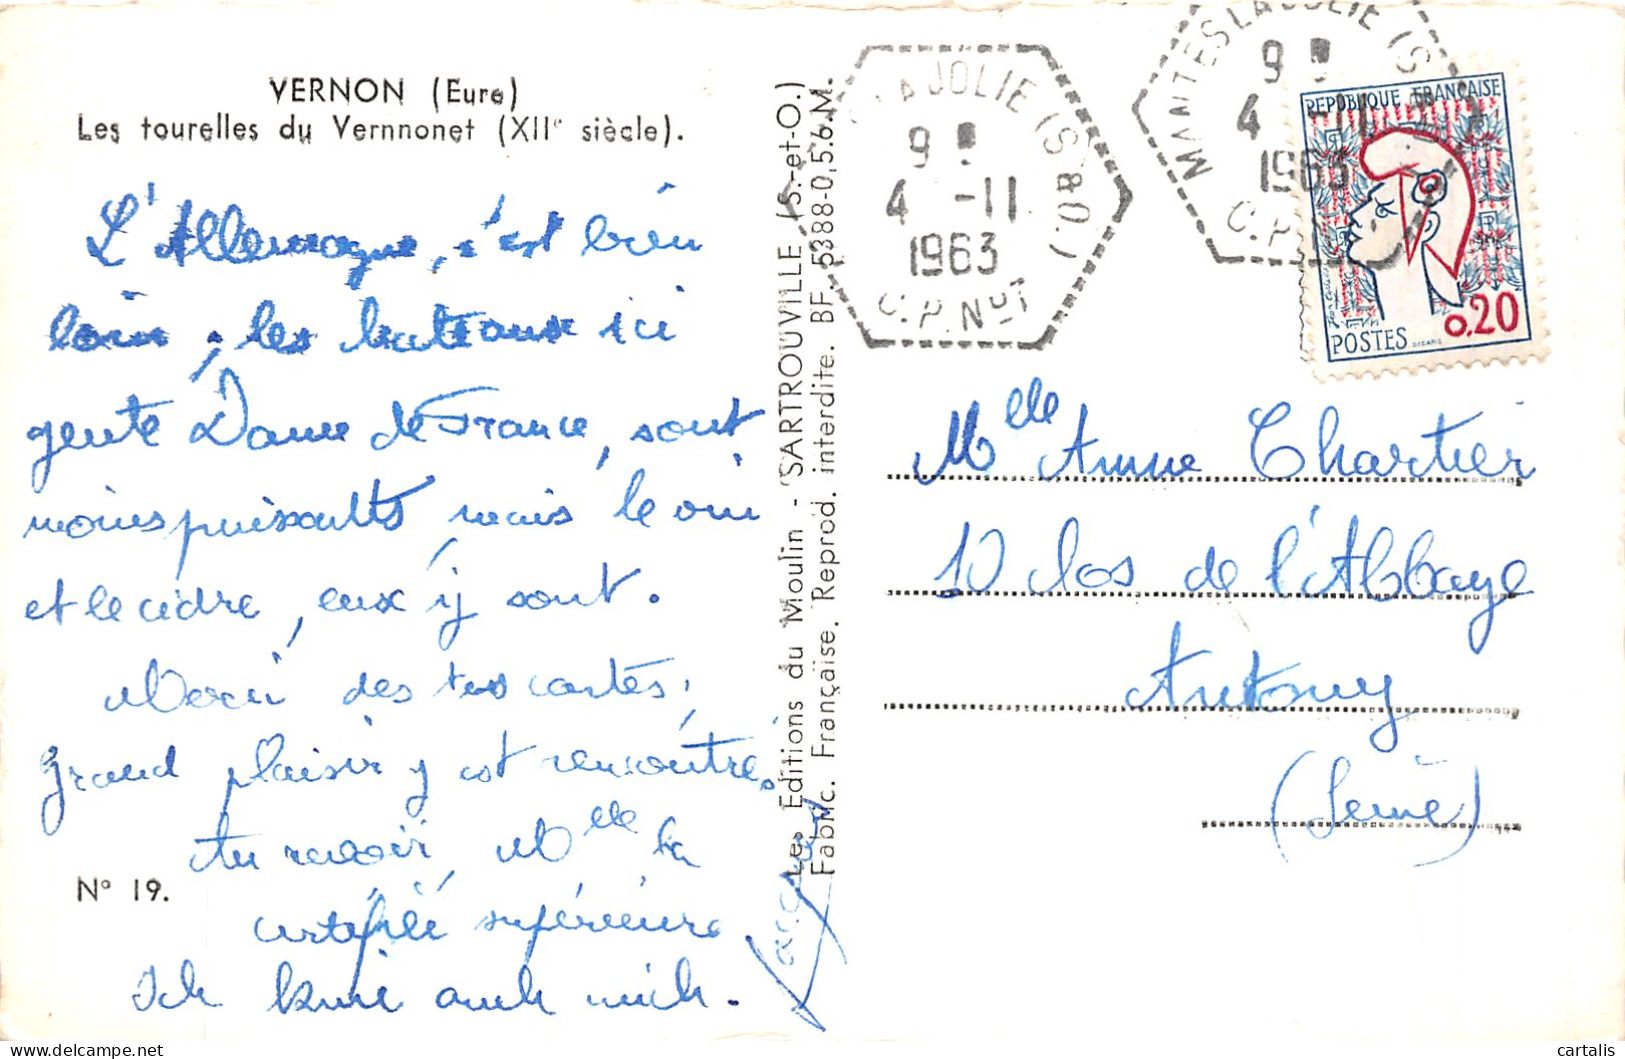 VERNON (Eure)
Les tourelles du Vernnonet (XIIe siècle).
L'Allemagne, c'est bien
loin, les bateaux ici
gente Dame de France, sont
moins puissants mais le vin
et le cidre, eux y sont.
Merci des tes cartes,
grand plaisir y est rencontré.
Au revoir, Mlle la
certifiée supérieure.
Ich auch mich.
N° 19.
Les Editions du Moulin - SARTROUVILLE (S.-et-O.)
Fabric. Française. Reprod. interdite. BF. 5388-0,5.6.M.
LA JOLIE (S & O.)
9
4 -11
1963
C.P. N°1
MANTES LA JOLIE (S
9
4 -11
1963
C.P.
REPUBLIQUE FRANÇAISE
0,20
POSTES
DECARIS
Mlle Anne Chartier
10 Clos de l'Abbaye
Antony
(Seine)
cartalis
delcampe.net